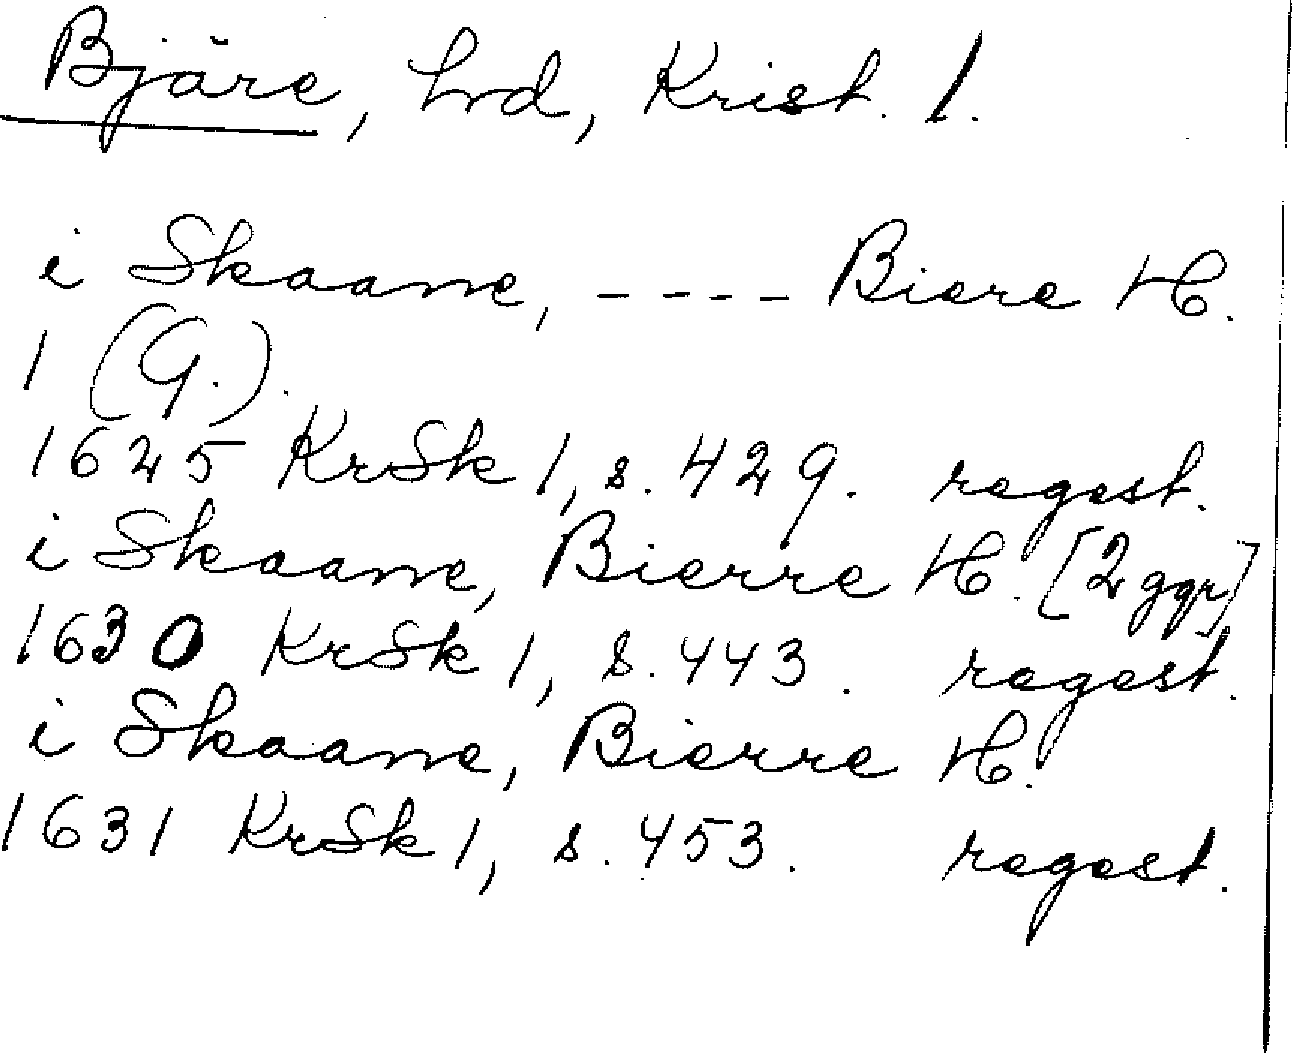 Bjäre, hrd, Krist. 1.
i Skaane, ---- Biere H.
1 (G.).
1625 KrSk 1, s. 429. regest.
i Skaane, Bierre H. [2 ggr]
1630 KrSk 1, s. 443. regest.
i Skaane, Bierre H.
1631 KrSk 1, s. 453. regest.